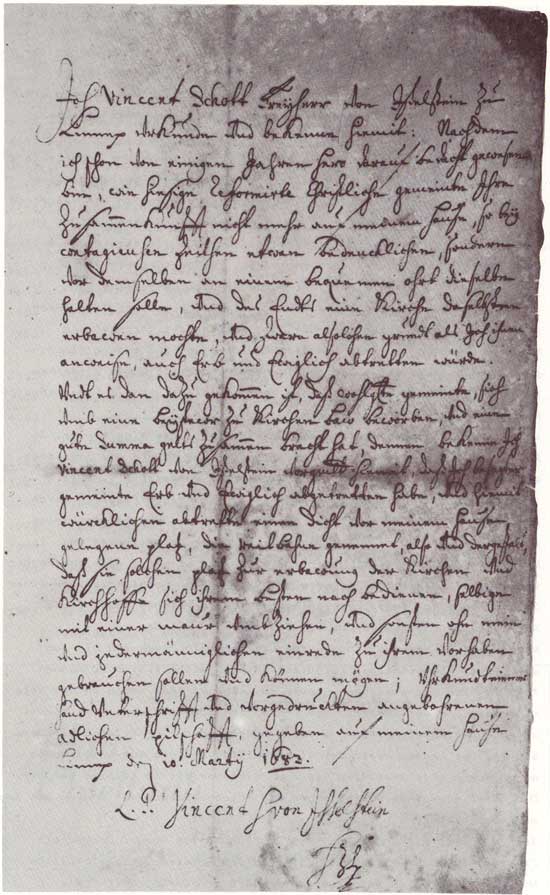 Ich Vincent Schott Freyherr von Ißelstein zu
Linnep Urkunde und bekenne hiemit: Nachdem
ich schon von einigen Jahren hero darauf bedacht gewesen
bin, wie hiesige Reformirte Christliche gemeinte Ihre
Zusammenkunfft nicht mehr auf meinem Hause, so bey
contagieusen Zeithen etwan bedencklichen, sondern
vor demselben an einem bequemen ohrt dieselbe
halten solle, und des Endts eine Kirche daselbsten
erbawen mochte, und zwarn alsolchen grundt als Ich ihnen
anweise, auch Erb und Ewiglich abtretten würde.
Undt es dan dazu gekommen ist, daß gemeinte, sich
umb eine beysteur zu Kirchen baw beworben, und eine
gute Summa gelts zusammen bracht hat, demnach bekenne Ich
Vincent Schott von Ißelstein hiemit, daß Ich besagter
gemeinte Erb und Ewiglich abgetretten habe, und hiemit
würcklichen abtrette einen dicht vor meinem Hause
gelegenen platz, die Reitbahn genennet, also und dergestalt,
daß sie solchen platz zur erbawung der Kirchen und
Kirchhoffs sich ihrem besten nach bedienen, selbige
mit einer maur umbziehen, und sonsten ohn mein
und jedermänniglichen einrede zu ihrem vorhaben
gebrauchen sollen und können mögen; Uhrkundt meiner
handt Unterschrifft und vorgedruckten angebohrenen
adlichen Pitschafft, gegeben auf meinem Hause
Linnep den 10 Martij 1682.
L.S. Vincent S von Ißelstein